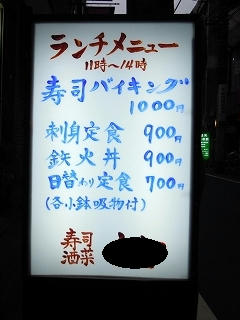 ランチメニュー
11時～14時
寿司バイキング
1000円
刺身定食 900円
鉄火丼 900円
日替わり定食 700円
(各小鉢吸物付)
寿司
酒菜